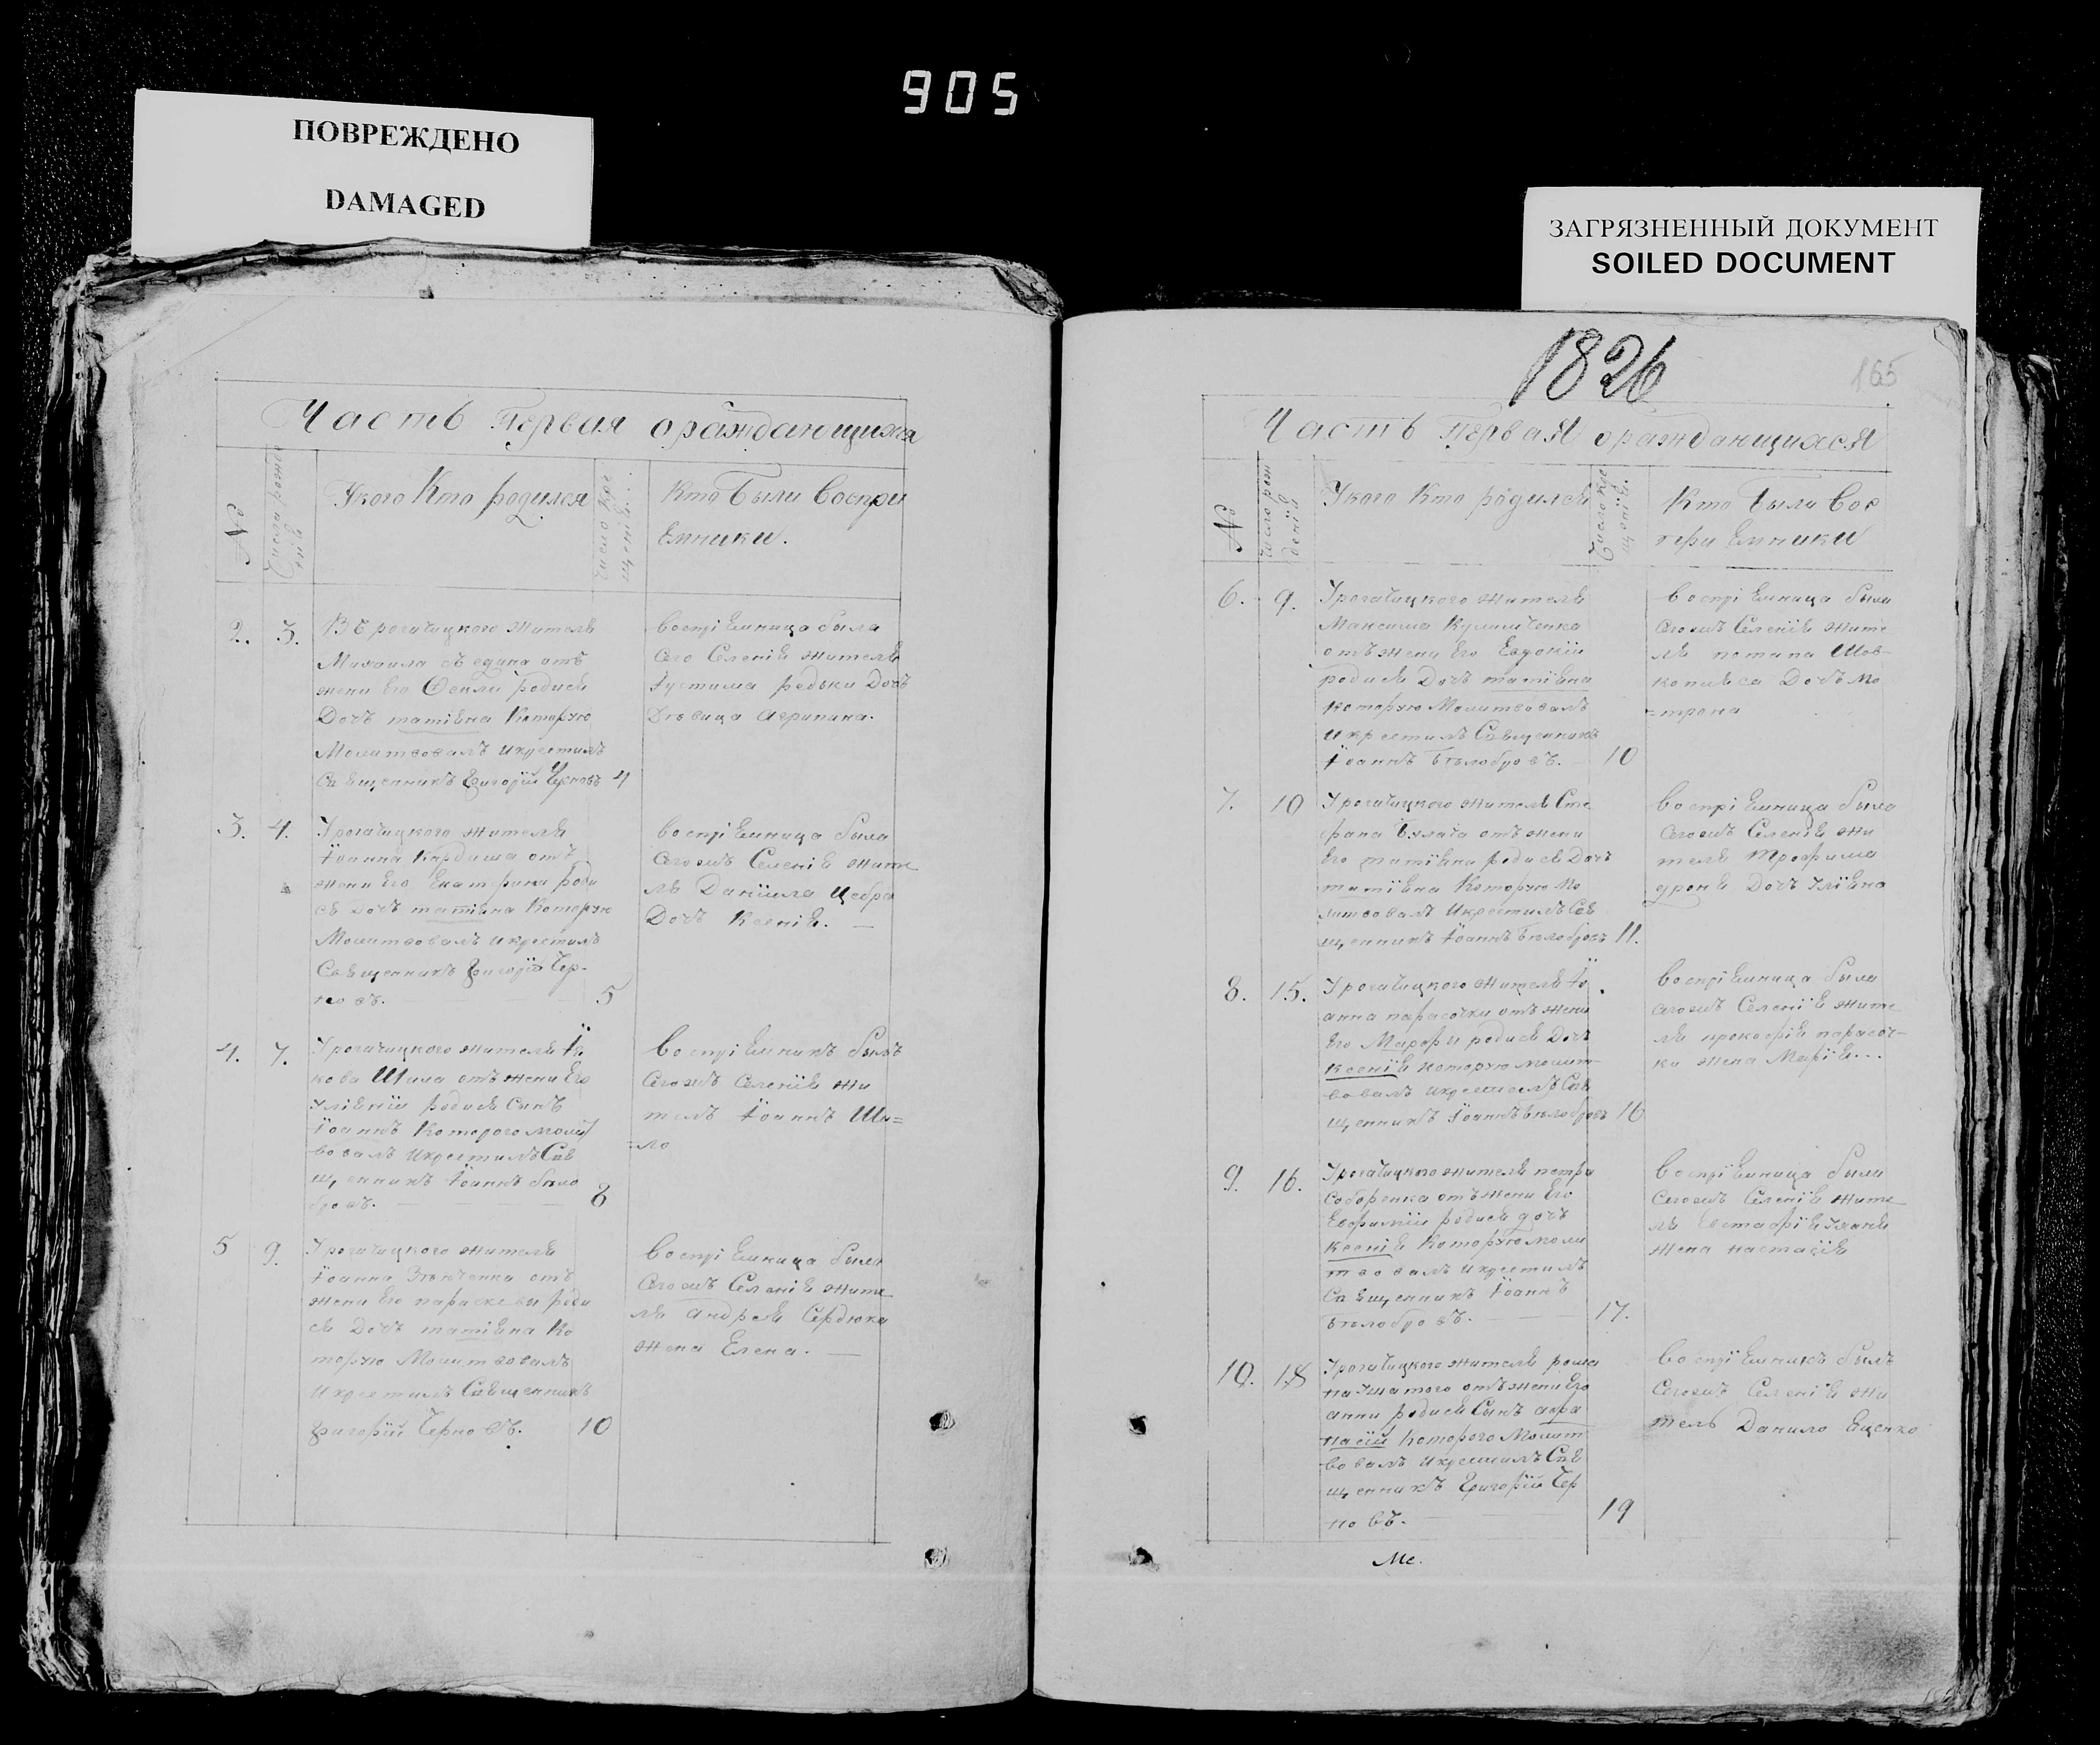 905
ПОВРЕЖДЕНО
DAMAGED
ЗАГРЯЗНЕННЫЙ ДОКУМЕНТ
SOILED DOCUMENT
Часть Первая ораждающихся
№
Число рожд
нія
Укого Кто родился
Число кре
щенія
Кто были воспри
емники.
2. 3.
Михаила
жены его Феклы родися
Дочь татіяна Которую
Молитвовалъ икрестилъ
Священникъ Григорій Черновъ 4
воспріемница была
сего Селенія жителя
Густима редьки Дочь
Дѣвица агрипина.
3. 4.
Урогачицкого жителя
Іоанна Кардаша отъ
жены его Екатерины роди
ся Дочь татіяна Которую
Молитвовалъ икрестилъ
Священникъ Григорій Чер-
новъ. 5
воспріемница была
Сегожъ Селенія жите
ля Даніила Цебра
Дочь Ксенія.
4. 7.
Урогачицкого жителя Іа
кова Шила отъ жены его
Уліянїи родися Сынъ
Іоаннъ Которого молит
вовалъ икрестилъ Свя
щенникъ Іоаннъ бѣло
бровъ. 8
воспріемникъ былъ
Сегожъ селенія жи
тель Іоаннъ Ши=
=ло
5 9.
Урогачицкого жителя
Іоанна Зѣнченка отъ
жены его параскевы роди
ся Дочь татіяна Ко
торую Молитвовалъ
икрестилъ Священникъ
Григорій Черновъ. 10
воспріемница была
Сегожъ Селенія жите
ля андрея Сердюка
жена Елена.
1826
165
Часть Первая ораждающихся
№
Число рож
денія
Укого Кто родился
Число кре
щенія.
Кто были вос
при емники
6. 9.
Урогачицкого жителя
Максима
отъ жены его Евдокіи
родися Дочь татіяна
которую Молитвовалъ
икрестилъ Священникъ
Іоаннъ Бѣлобровъ. 10
воспріемница была
Сегожъ Селенія жите
ля потапа Шов-
копляса Дочь Мо
=трона
7. 10
Урогачицкого жителя Сте
фана Булата отъ жены
его татїяны родися Дочь
татїяна Которую Мо
литвовалъ икрестилъ Свя
щенникъ Іоаннъ Бѣлобровъ 11.
воспріемница была
Сегожъ Селенія жи
теля трофима
Дочь Улїяна
8. 15.
Урогачицкого жителя Іо
анна парасочки отъ жены
его Марфы родися Дочь
ксенія которую молит
вовалъ икрестилъ Свя
щенникъ Іоаннъ бѣлобровъ 16
воспріемница была
Сегожъ Селенїя жите
ля прокофія парасоч-
ки жена Марія...
9. 16.
Урогачицкого жителя петра
Соборенка отъ жены его
Евфиміи родися дочь
ксенія Которую моли
твовалъ икрестилъ
Священникъ Іоаннъ
бѣлобровъ. 17.
воспріемница была
Сегожъ Селенія жите
ля Евстафія
жена настасія
10. 18
Урогачицкого жителя рома
на отъ жены его
анны родися Сынъ афа
насій Которого Молит
вовалъ икрестилъ Свя
щенникъ Григорій Чер
новъ. 19
воспріемникъ былъ
Сегожъ Селенія жи
тель Данило Яценко
Ме.